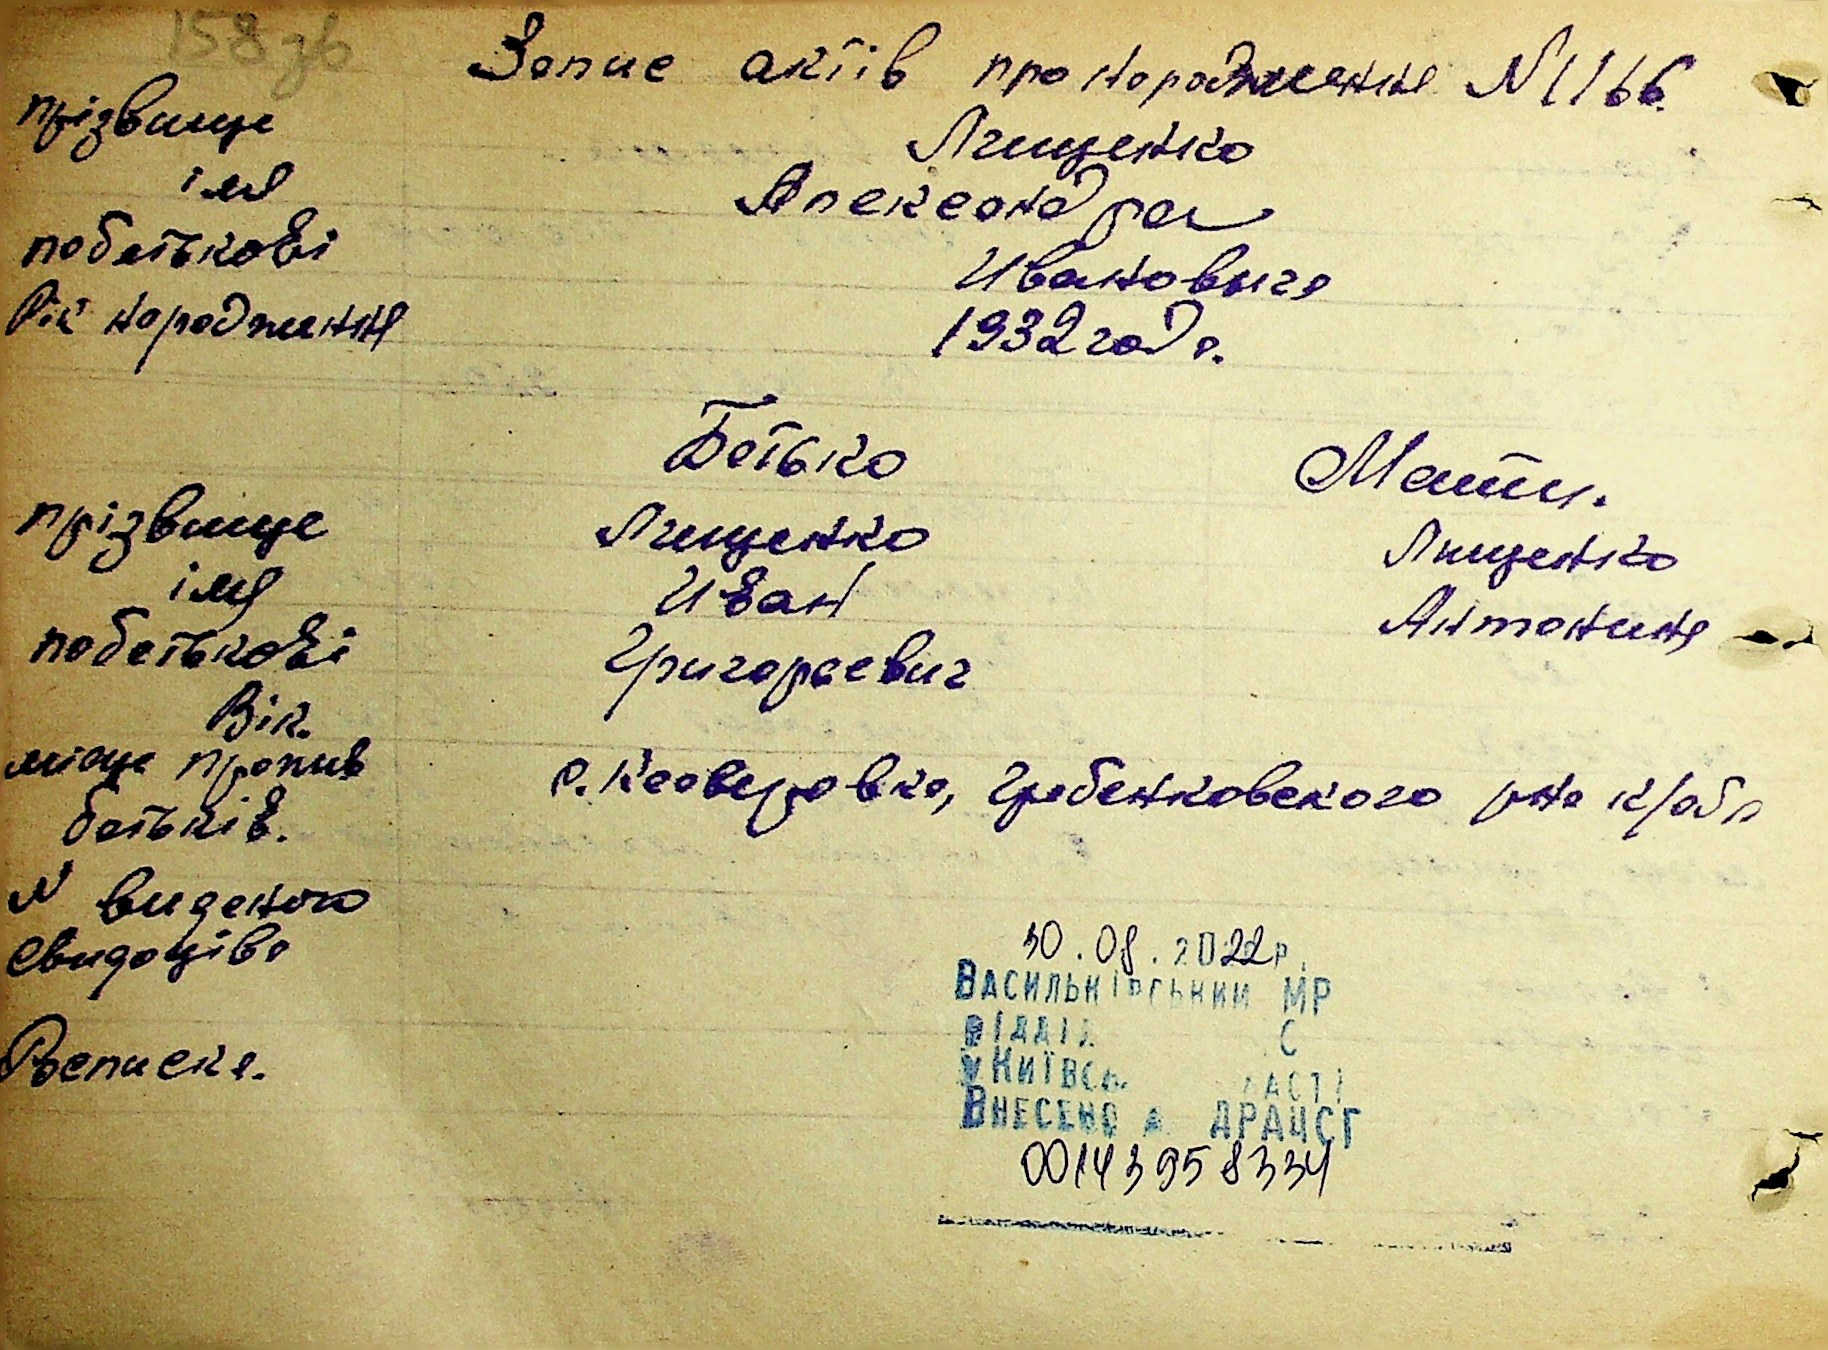 158 зв
Запис актів про народження N 1166.
прізвище Лищенко
імя Александра
по батькові Ивановича
Рік народження 1932 года.
Батько Мати.
прізвище Лищенко Лищенко
імя Иван Антонина
по батькові Григорьевич
Вік.
місце прожив с. Ксаверовка, Гребенковского р-на к/обл
батьків.
N виданого
свидоцтва
Росписка.
30.08.2022р.
Васильківський МР
відділ С
у Київс асті
Внесено ДРАЦСГ
00143958334